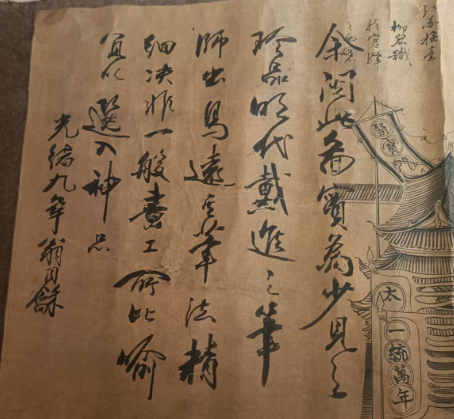 柳宏識
余閱此畵實為少見之
珍品明代戴進之筆
師出馬遠其筆法精
細决非一般畫工所比喻
宜以選入神品
光緒九年翁同龢
太
一統萬年